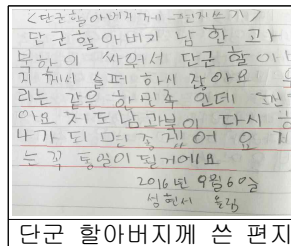 <단군할아버지께 편지쓰기>
단군할아버지 남한 고
부하이 싸워서 단군 할아버
지 께서 슬퍼 하시 잖아요
리는 같은 한민족 인데
아요 저도 남과북이 다시
나가 되 면 좋겠어 요
는 꼭 통일이 될거에요
2016년 9월 6일
올림
단군 할아버지께 쓴 편지